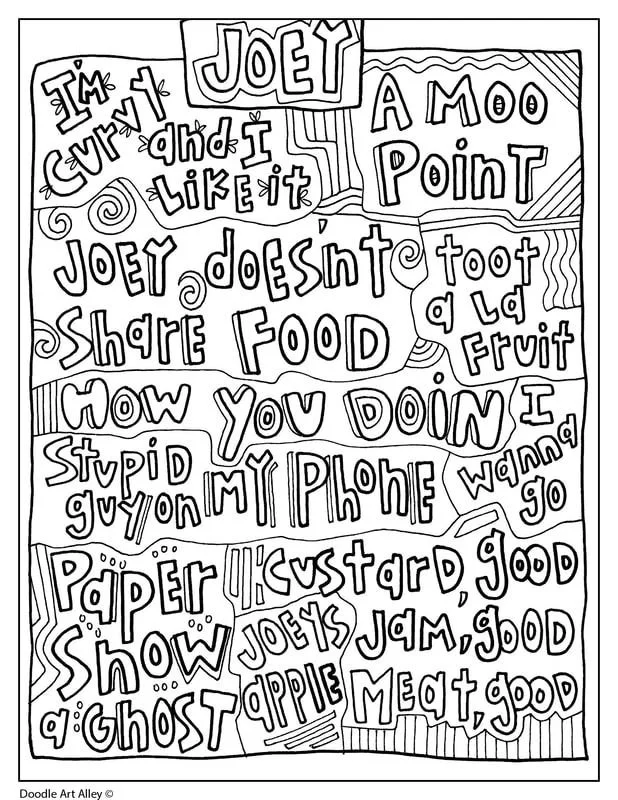 JOEY
I'm
curvy
and I
like it
A MOO
Point
JOEY doesn't
Share FOOD
toot
a la
Fruit
HOW YOU DOIN
Stupid
guy on
MY PHONE
I
wanna
go
PaPer
Snow
a GHOST
Custard, good
Jam, good
Meat, good
JOEYS
apple
Doodle Art Alley ©